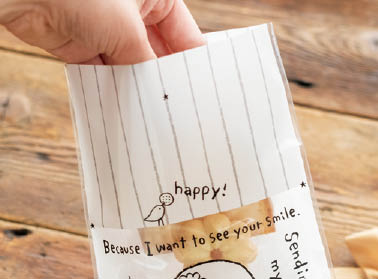 happy!
Because I want to see your smile.
Sending
my